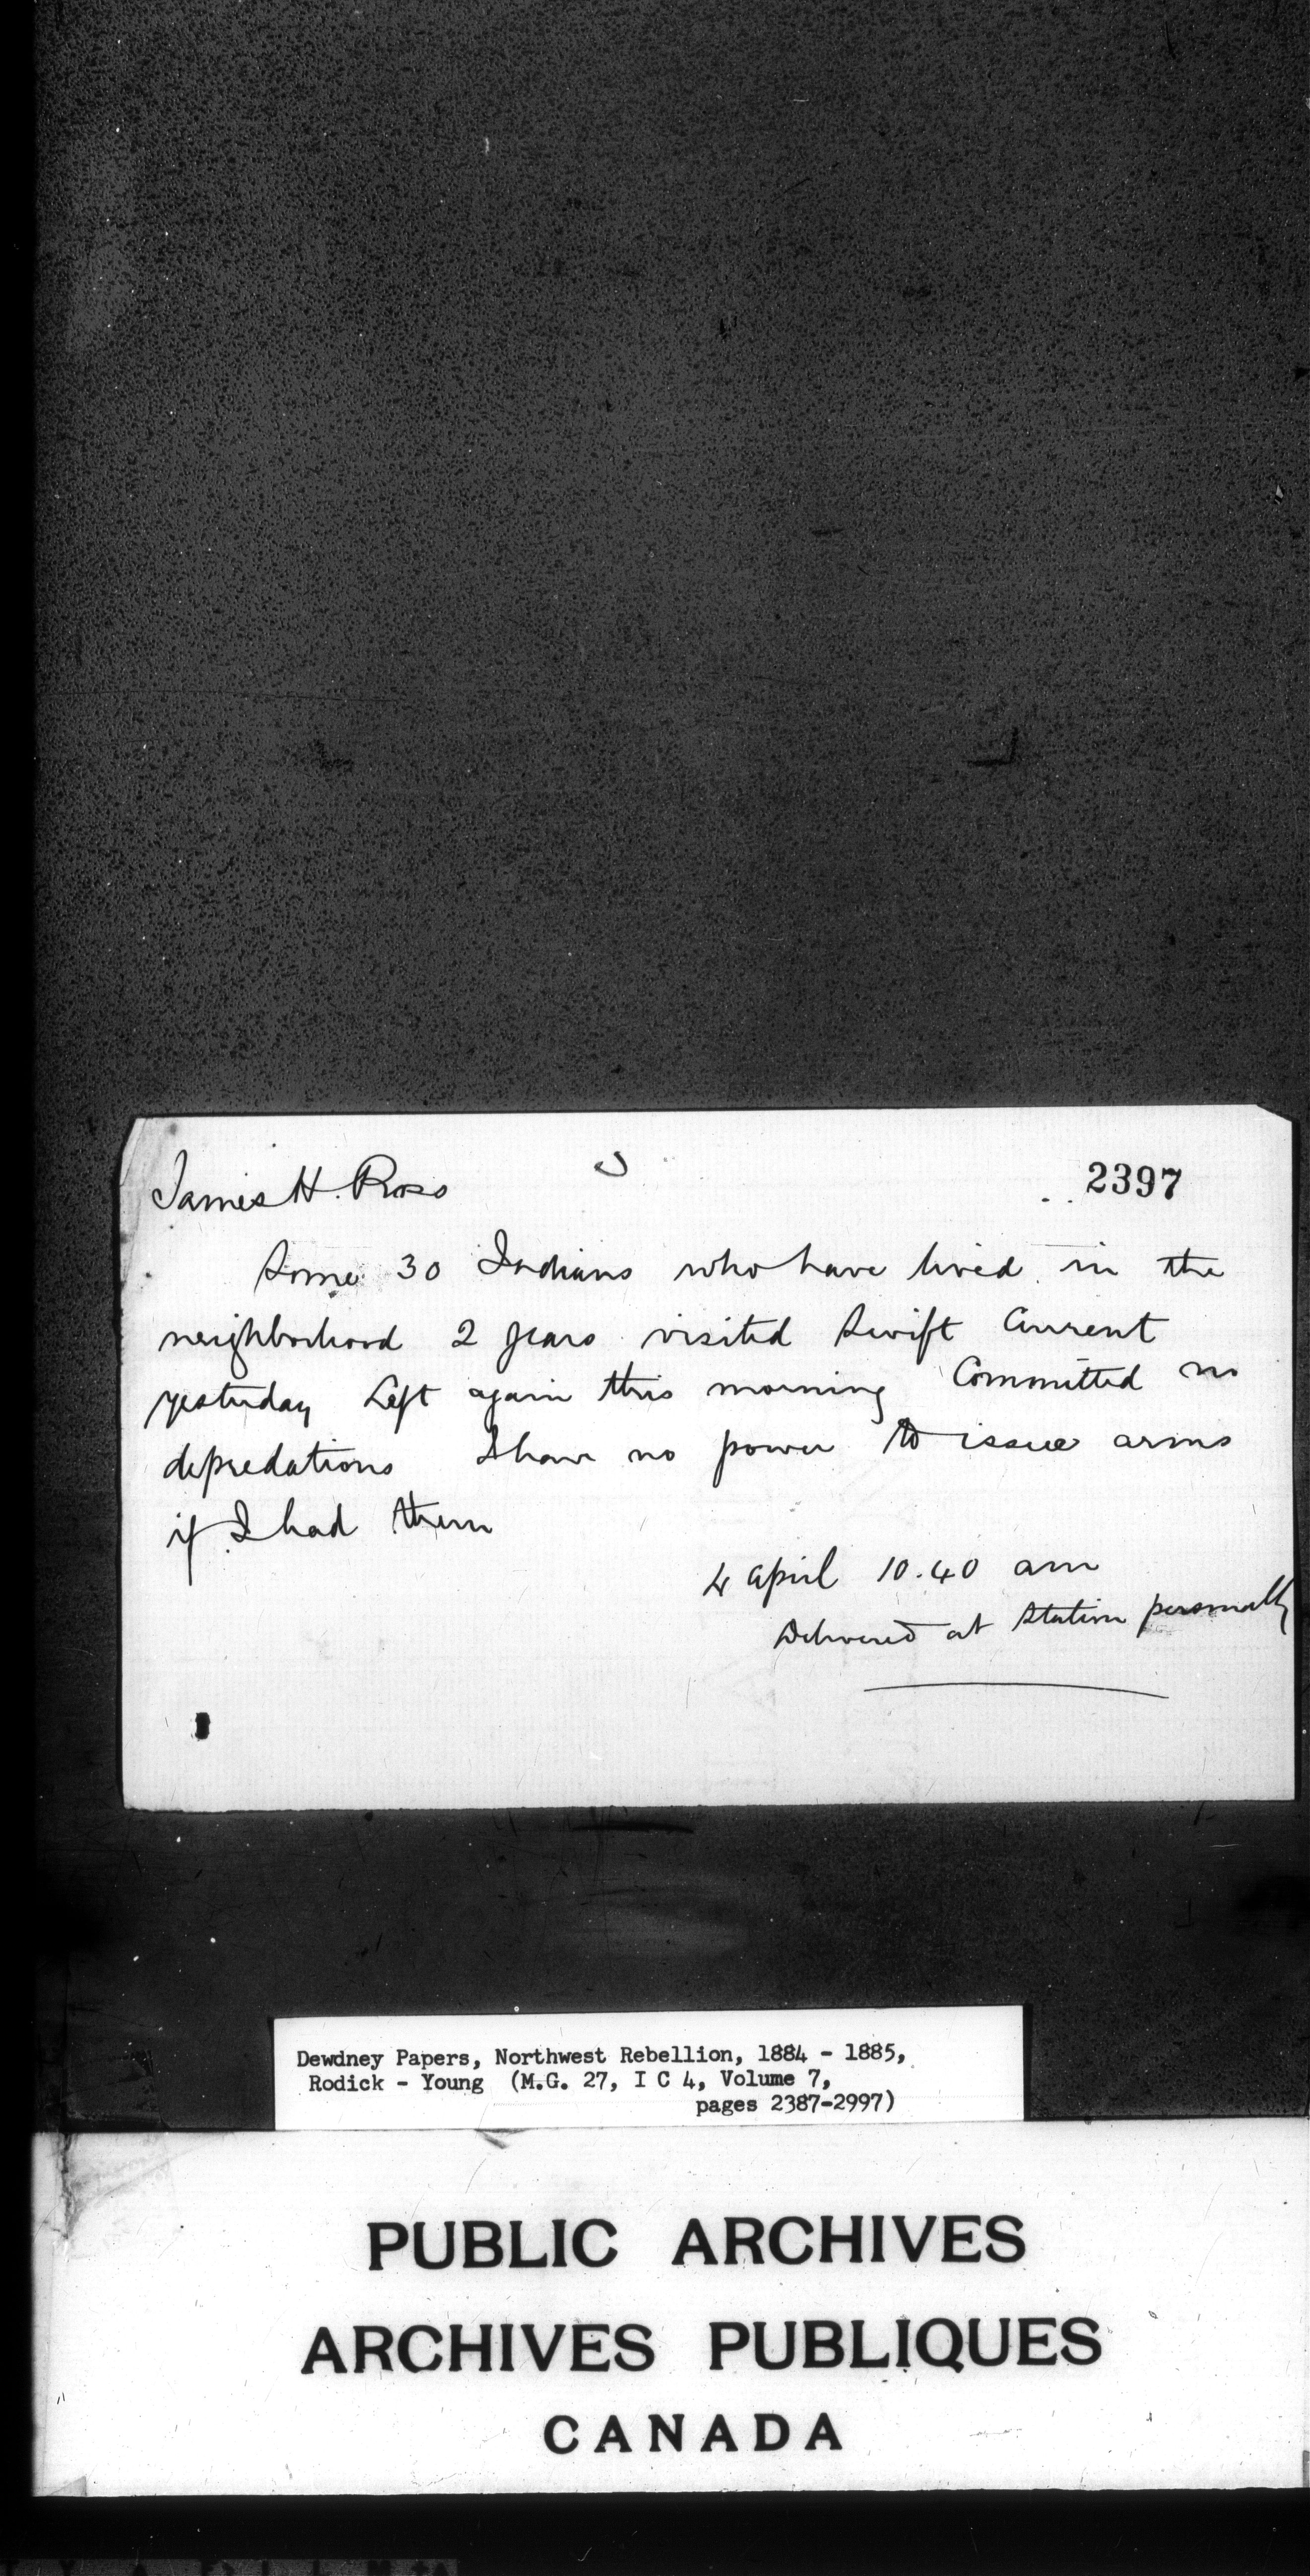 James H. Ross
2397
Some 30 Indians who have lived in the
neighborhood 2 years visited Swift Current
yesterday Left again this morning Committed no
depredations I have no power to issue arms
if I had them
4 April 10.40 am
Delivered at Station personally
Dewdney Papers, Northwest Rebellion, 1884 - 1885,
Rodick - Young (M.G. 27, I C 4, Volume 7,
pages 2387-2997)
PUBLIC ARCHIVES
ARCHIVES PUBLIQUES
CANADA